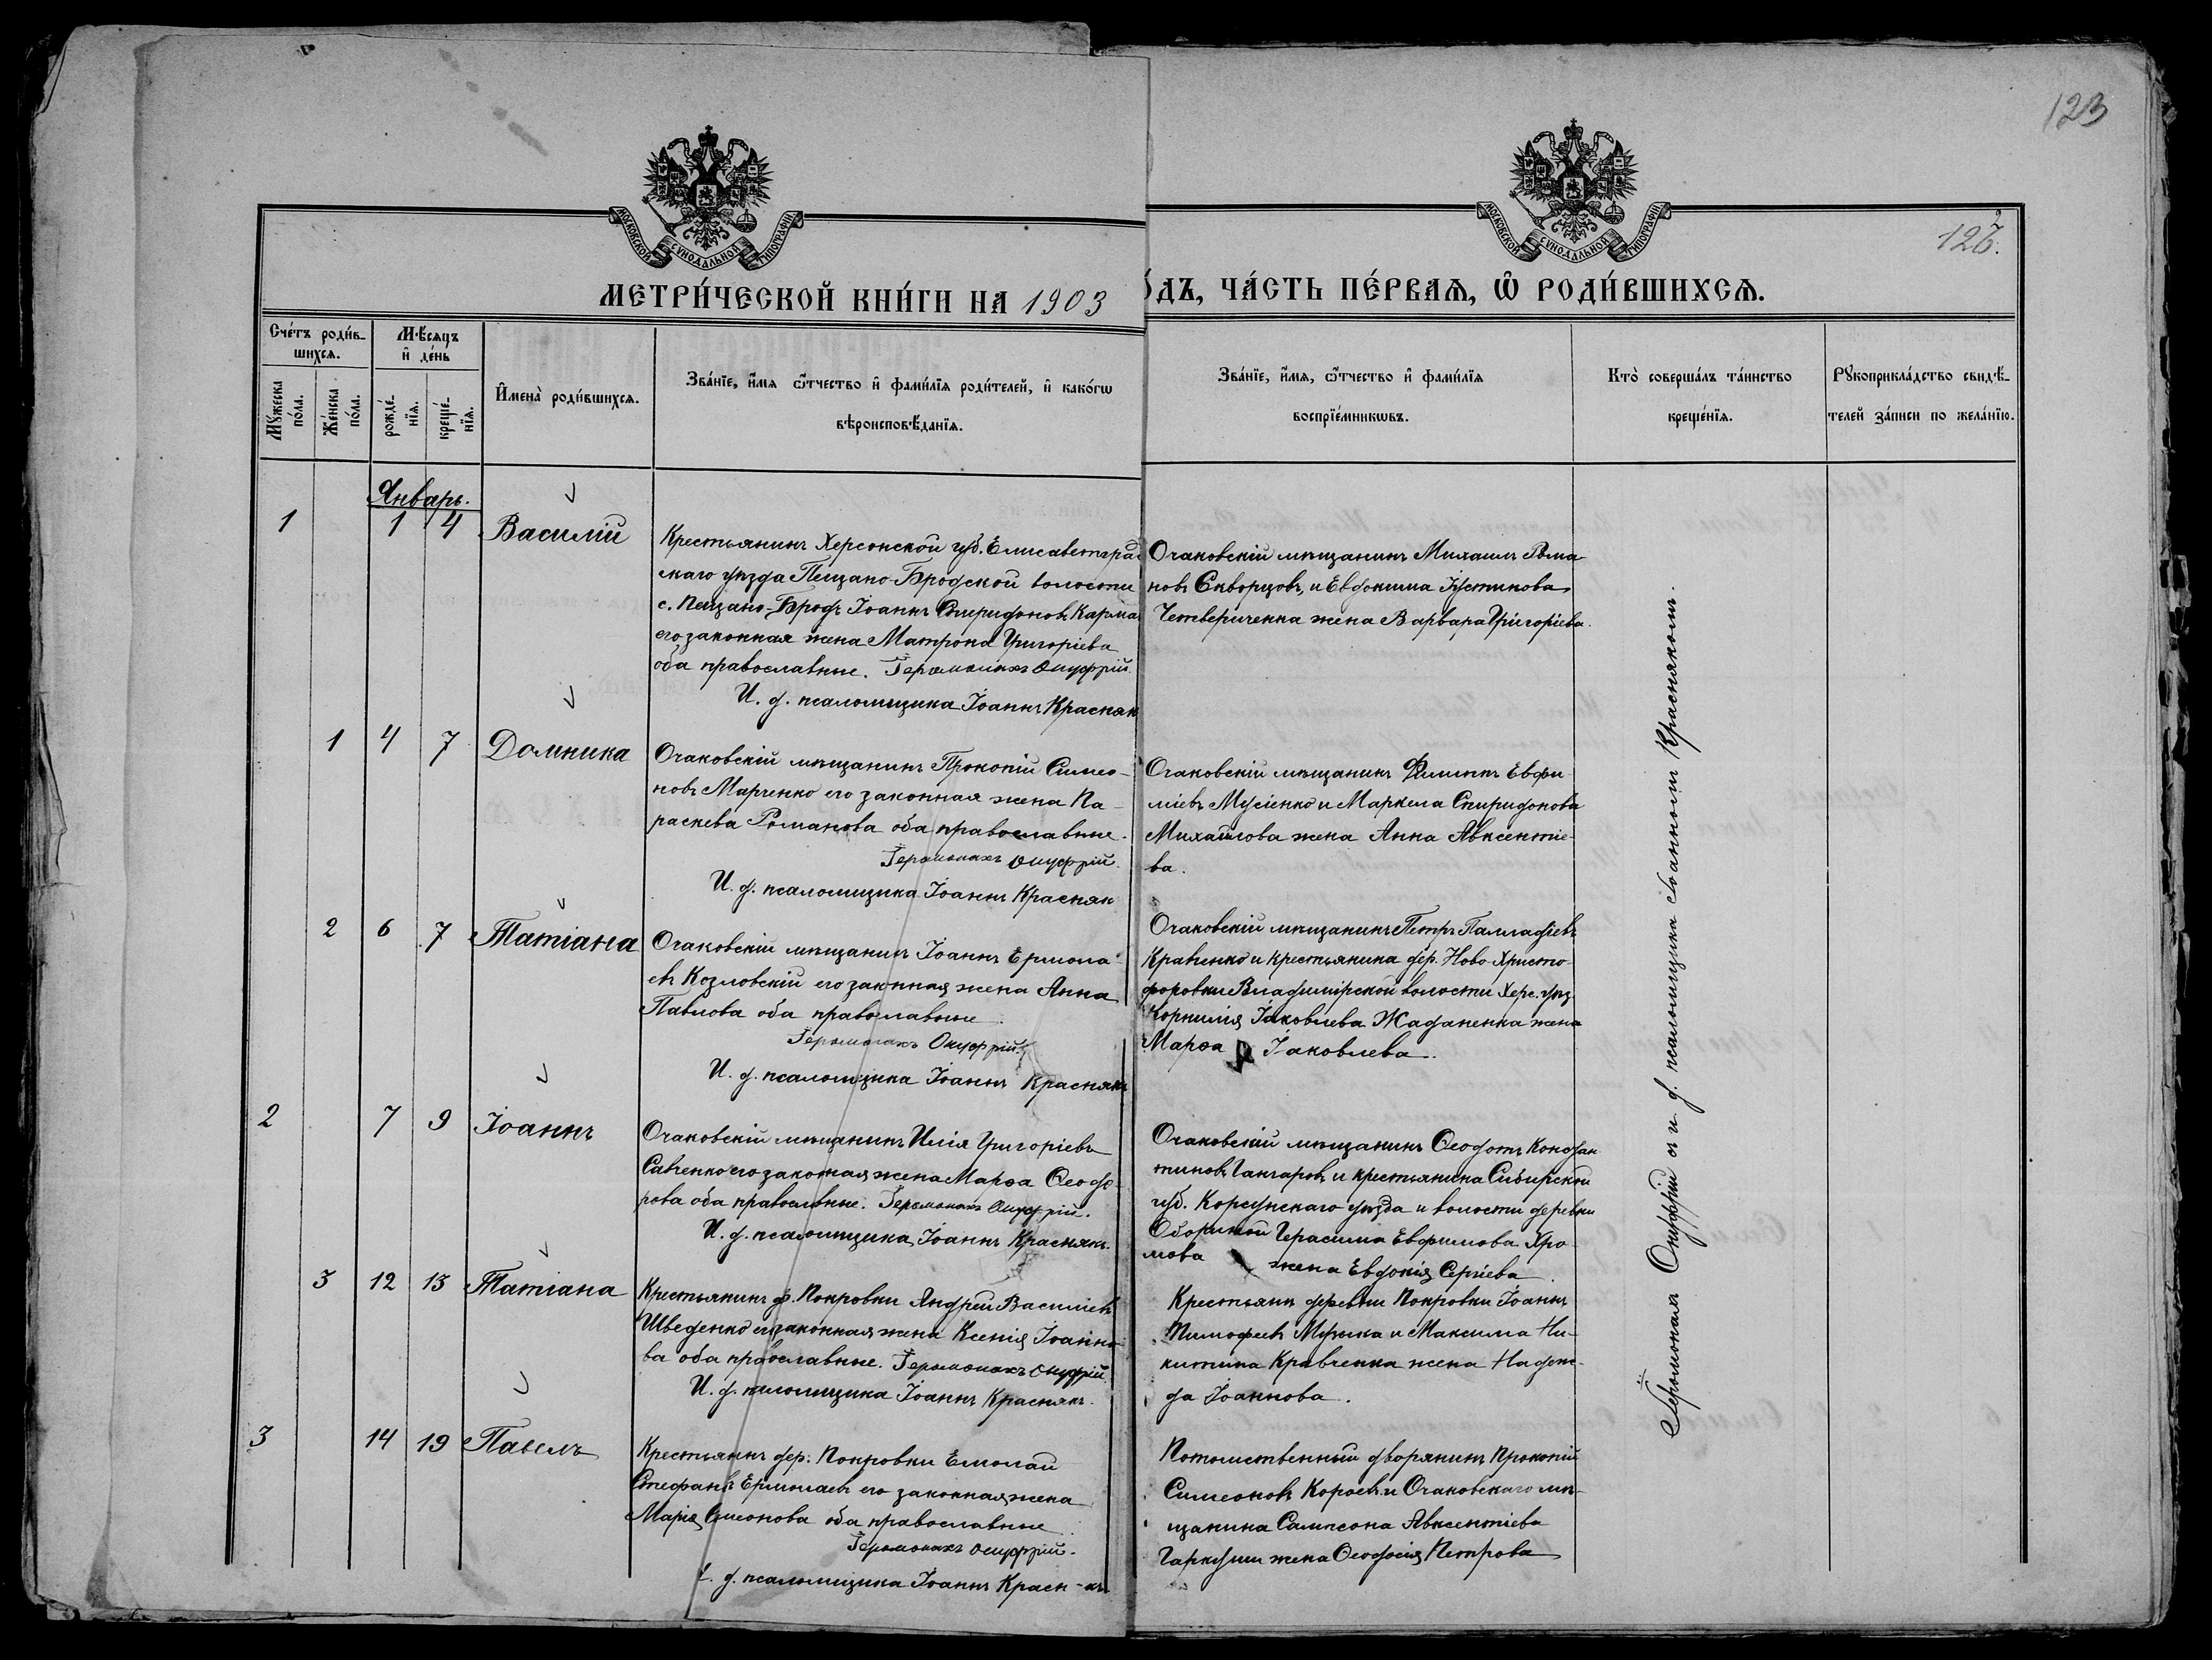 123
126.
МОСКОВСКОЙ СУНОДАЛЬНОЙ ТИПОГРАФІИ
МОСКОВСКОЙ СУНОДАЛЬНОЙ ТИПОГРАФІИ
МЕТРИ́ЧЕСКОЙ КНИ́ГИ НА 1903
ДЪ, ЧА́СТЬ ПЕ́РВАѦ, Ѿ РОДИ́ВШИХСѦ.
Сче́тъ роди́в-
шихсѧ.
Мꙋжеска по́ла.
Же́нска по́ла.
Мѣсѧцъ
и҆ де́нь
рожде́-нїѧ.
креще́-нїѧ.
И҆мена̀ роди́вшихсѧ.
Зва́нїе, и҆́мѧ ѻ҆́тчество и҆ фами́лїѧ роди́телей, и҆ како́гѡ
вѣроисповѣ́данїѧ.
Зва́нїе, и҆́мѧ, ѻ҆́тчество и҆ фами́лїѧ
воспрїе́мникѡвъ.
Кто̀ соверша́лъ та́инство
креще́нїѧ.
Рꙋкоприкла́дство свидѣ́-
телей за́писи по жела́нїю.
Январь.
1 1 4 Василій
Крестьянинъ Херсонской губ. Елисаветград
скаго уѣзда Пещано-Бродской волости
с. Пещано-Бродъ Іоаннъ Спиридоновъ Карма
его законная жена Матрона Григоріева
оба православные. Іеромонахъ Онуфрій
И. д. псаломщика Іоаннъ Краснян
Очаковскій мѣщанинъ Михаилъ Рома
новъ Скворцовъ, и Евдокима Іустинова
Четвериченка жена Варвара Григоріева.
1 4 7 Домника
Очаковскій мѣщанинъ Прокопій Симео-
новъ Марченко его законная жена Па-
раскева Романова оба православные.
Іеромонахъ Онуфрій.
И. д. псаломщика Іоаннъ Краснян
Очаковскій мѣщанинъ Филиппъ Евфи-
міевъ Мусіенко и Маркела Спиридонова
Михайлова жена Анна Авксентіе-
ва.
2 6 7 Татіана
Очаковскій мѣщанинъ Іоаннъ Ермола-
евъ Козловскій его законная жена Анна
Павлова оба православные.
Іеромонахъ Онуфрій.
И. д. псаломщика Іоаннъ Краснякъ
Очаковскій мѣщанинъ Петръ Палладіевъ
Кравченко и крестьянина дер. Ново-Христо-
форовки Владимірской волости Херс. уѣз.
Корнилія Іаковлева Жаданенка жена
Марѳа Іаковлева.
2 7 9 Іоаннъ
Очаковскій мѣщанинъ Илія Григоріевъ
Савченко его законная жена Марѳа Ѳеодо-
рова оба православные. Іеромонахъ Онуфрій.
И. д. псаломщика Іоаннъ Краснякъ.
Очаковскій мѣщанинъ Ѳеодотъ Констан
тиновъ Ганчаровъ и крестьянина Сибирской
губ. Корсунскаго уѣзда и волости деревни
Герасима Евфимова Хро-
мова жена Евдокія Сергіева.
3 12 13 Татіана
Крестьянинъ д. Покровки Андрей Василіевъ
Шведенко его законная жена Ксенія Іоанно
ва оба православные. Іеромонахъ Онуфрій
И. д. псаломщика Іоаннъ Краснякъ.
Крестьянинъ деревни Покровки Іоаннъ
Тимофеевъ Музыка и Максима Ни-
китина Кравченка жена Надеж-
да Іоаннова.
3 14 19 Павелъ
Крестьянинъ дер. Покровки Емолай
Стефановъ Ермолаевъ его законная жена
Марія Симеонова оба православные.
Іеромонахъ Онуфрій.
д. псаломщика Іоаннъ Красн-къ
Потомственный дворянинъ Прокопій
Симеоновъ и Очаковскаго мѣ-
щанина Сампсона Авксентіева
Гаркуши жена Ѳеодосія Петрова
Іеромонахъ Онуфрій съ и. д. псаломщика Іоанномъ Краснякомъ.